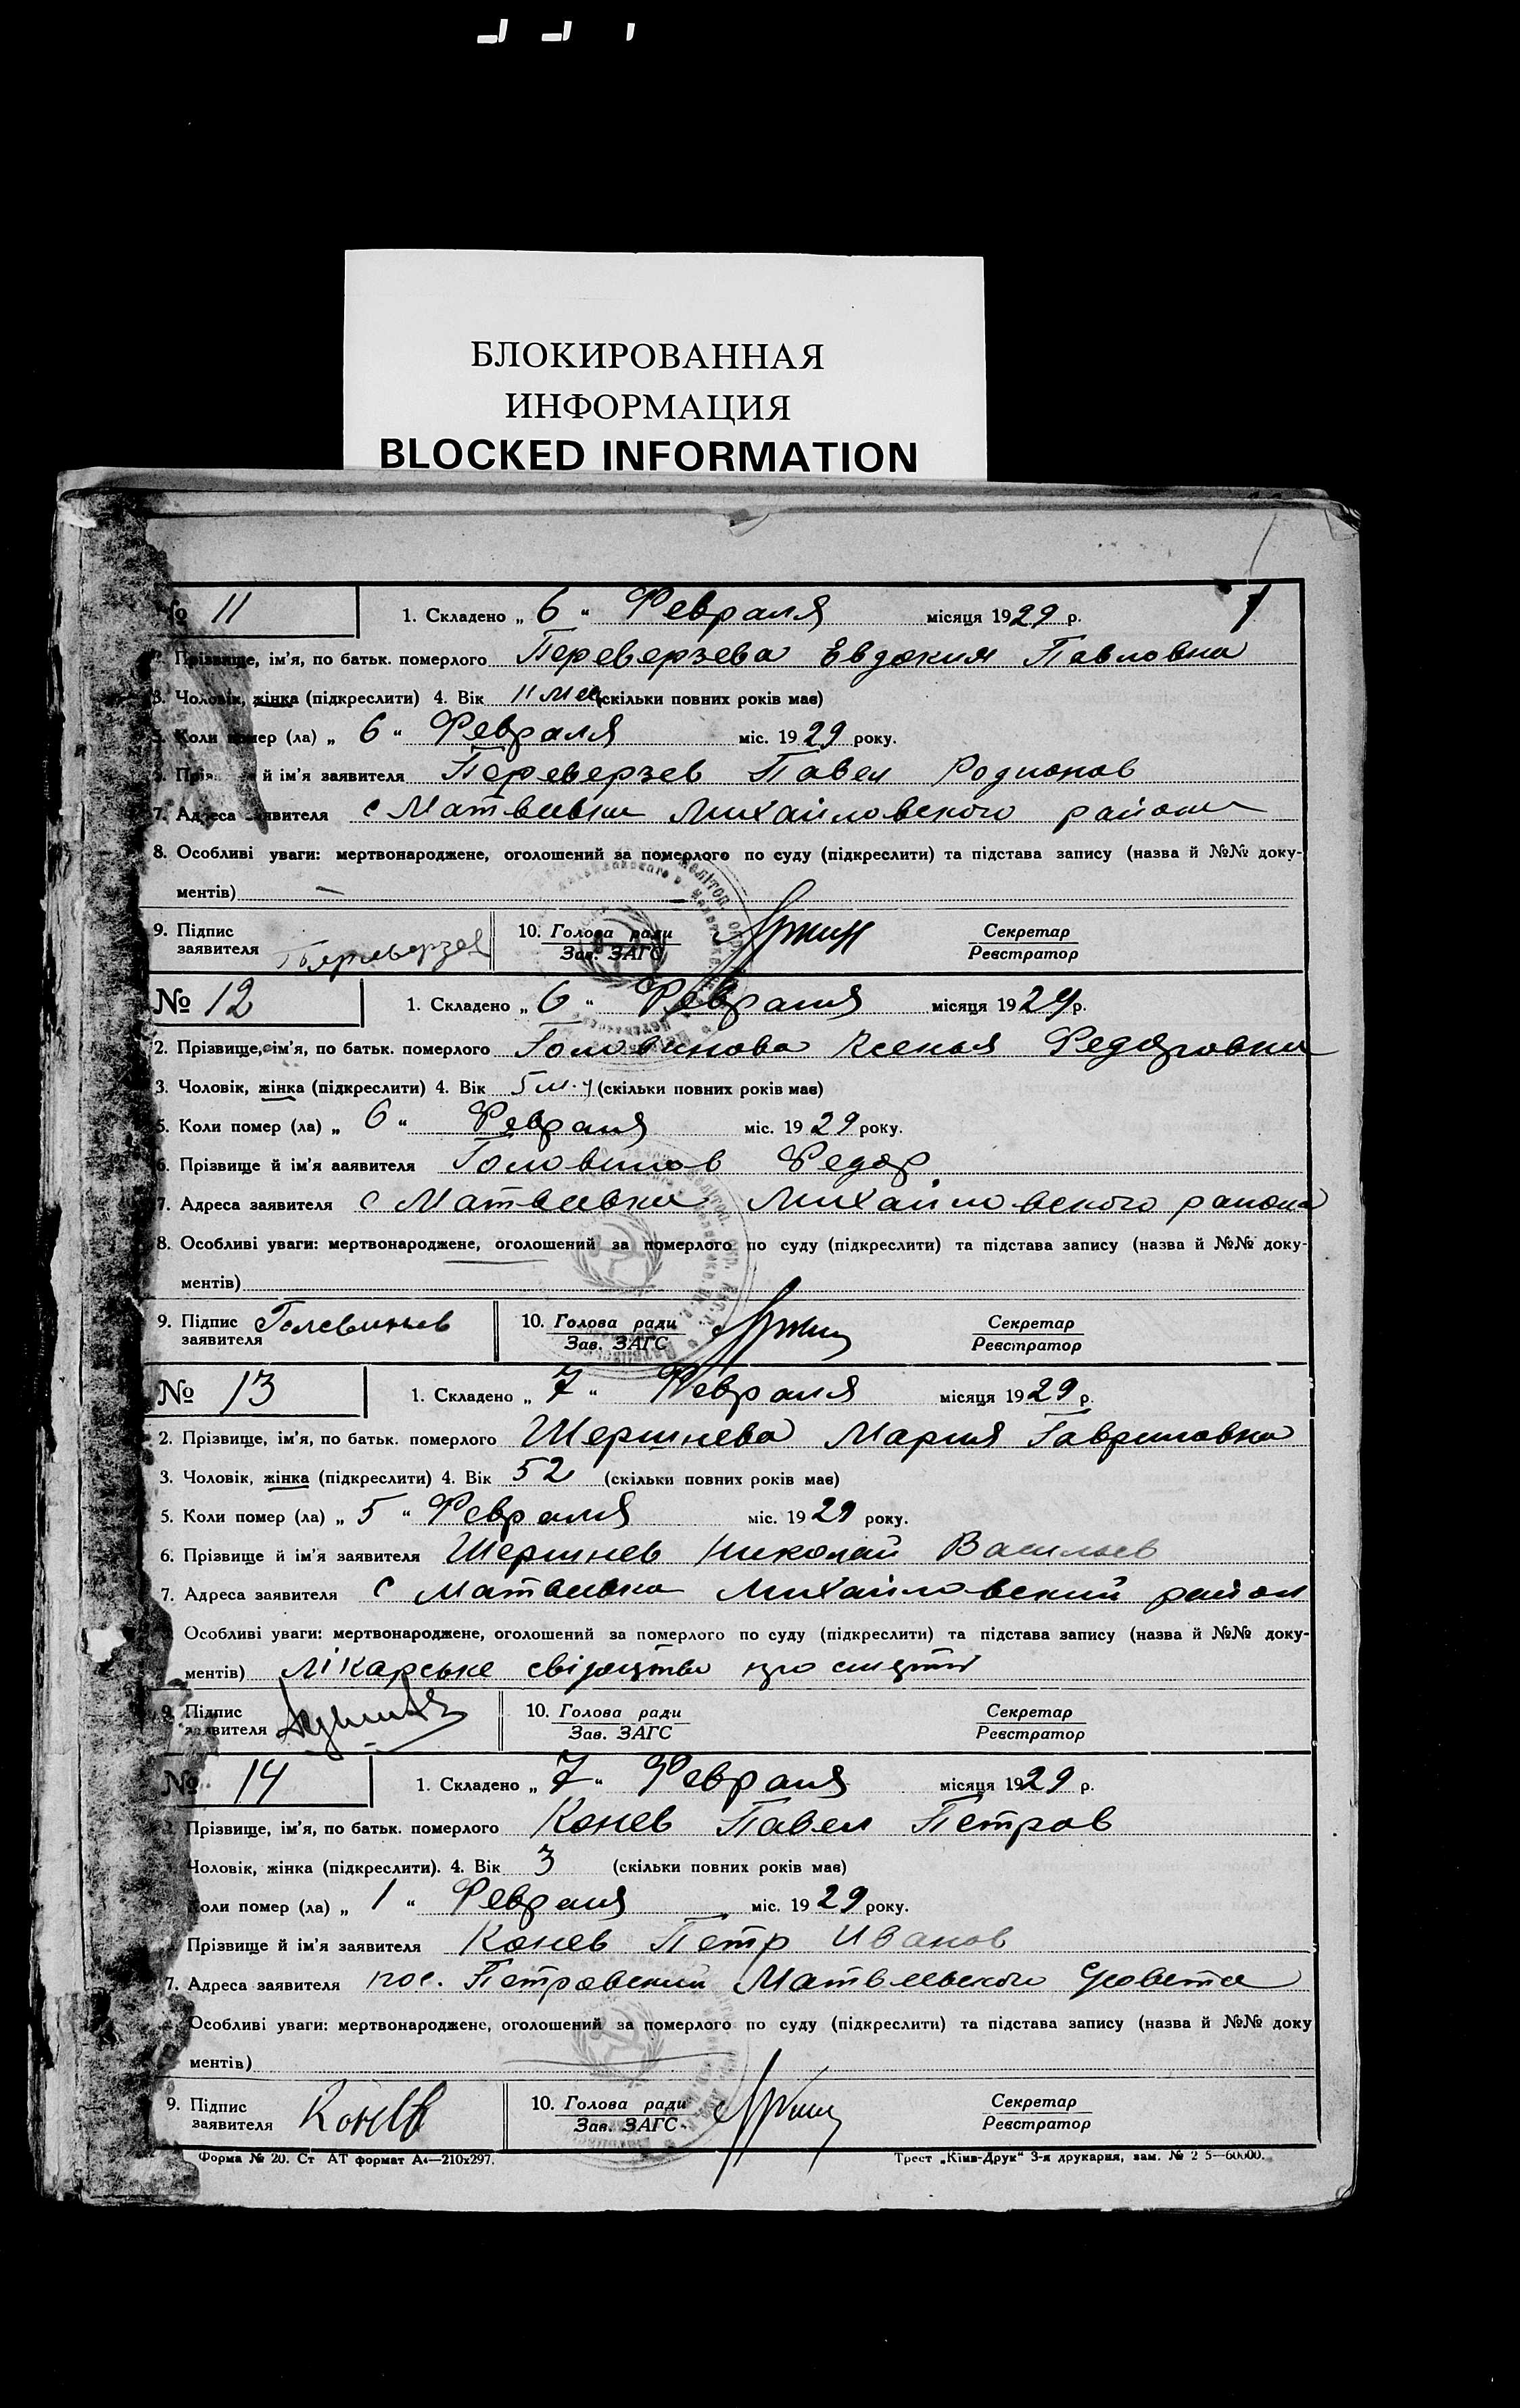 БЛОКИРОВАННАЯ
ИНФОРМАЦИЯ
BLOCKED INFORMATION
№ 11 1. Складено „ 6 “ Февраля місяця 1929 р.
Прізвище, ім'я, по батьк. померлого Переверзева Евдокия Павловна
3. Чоловік, жінка (підкреслити) 4. Вік 11 мес (скільки повних років має)
5. Коли помер (ла) „ 6 “ Февраля міс. 1929 року.
й ім'я заявителя Переверзев Павел Родионов
7. Адреса заявителя с Матвеевки Михайловского района
8. Особливі уваги: мертвонароджене, оголошений за померлого по суду (підкреслити) та підстава запису (назва й №№ доку-
ментів) —
9. Підпис заявителя Переверзев 10. Голова ради Зав. ЗАГС Секретар Реєстратор
№ 12 1. Складено „ 6 “ Февраля місяця 1929 р.
2. Прізвище, ім'я, по батьк. померлого Головинова Ксенья Федоровна
3. Чоловік, жінка (підкреслити) 4. Вік 5 м. (скільки повних років має)
5. Коли помер (ла) „ 6 “ Февраля міс. 1929 року.
6. Прізвище й ім'я заявителя Головинов Федор
7. Адреса заявителя с Матвеевки Михайловского района
8. Особливі уваги: мертвонароджене, оголошений за померлого по суду (підкреслити) та підстава запису (назва й №№ доку-
ментів)
9. Підпис заявителя Головинов 10. Голова ради Зав. ЗАГС Секретар Реєстратор
№ 13 1. Складено „ 7 “ Февраля місяця 1929 р.
2. Прізвище, ім'я, по батьк. померлого Шершнева Мария Гавриловна
3. Чоловік, жінка (підкреслити) 4. Вік 52 (скільки повних років має)
5. Коли помер (ла) „ 5 “ Февраля міс. 1929 року.
6. Прізвище й ім'я заявителя Шершнев Николай Васильев
7. Адреса заявителя с Матвеевка Михайловский район
Особливі уваги: мертвонароджене, оголошений за померлого по суду (підкреслити) та підстава запису (назва й №№ доку-
ментів) Лікарське свідоцтво про смерть
9. Підпис заявителя 10. Голова ради Зав. ЗАГС Секретар Реєстратор
№ 14 1. Складено „ 7 “ Февраля місяця 1929 р.
Прізвище, ім'я, по батьк. померлого Конев Павел Петров
Чоловік, жінка (підкреслити). 4. Вік 3 (скільки повних років має)
Коли помер (ла) „ 1 “ Февраля міс. 1929 року.
Прізвище й ім'я заявителя Конев Петр Иванов
7. Адреса заявителя пос. Петровский Матвеевского Совета
Особливі уваги: мертвонароджене, оголошений за померлого по суду (підкреслити) та підстава запису (назва й №№ доку
ментів)
9. Підпис заявителя Конев 10. Голова ради Зав. ЗАГС Секретар Реєстратор
Форма № 20. Ст АТ формат А4—210х297. Трест „Київ-Друк“ 3-я друкарня, зам. № 2 5—60000.